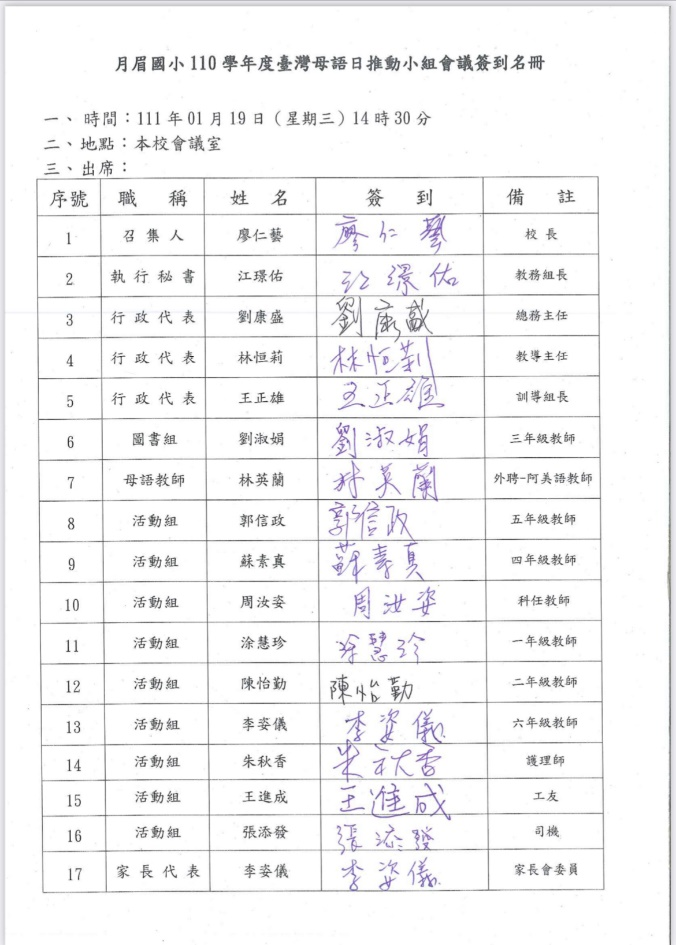 月眉國小 110 學年度臺灣母語日推動小組會議簽到名冊
一、時間：111 年 01 月 19 日（星期三）14 時 30 分
二、地點：本校會議室
三、出席：
序號 職稱 姓名 簽到 備註
1 召集人 廖仁藝 廖仁藝 校長
2 執行秘書 江璟佑 江璟佑 教務組長
3 行政代表 劉康盛 劉康盛 總務主任
4 行政代表 林恒莉 林恒莉 教導主任
5 行政代表 王正雄 王正雄 訓導組長
6 圖書組 劉淑娟 劉淑娟 三年級教師
7 母語教師 林英蘭 林英蘭 外聘-阿美語教師
8 活動組 郭信政 郭信政 五年級教師
9 活動組 蘇素真 蘇素真 四年級教師
10 活動組 周汝姿 周汝姿 科任教師
11 活動組 涂慧珍 涂慧珍 一年級教師
12 活動組 陳怡勤 陳怡勤 二年級教師
13 活動組 李姿儀 李姿儀 六年級教師
14 活動組 朱秋香 朱秋香 護理師
15 活動組 王進成 王進成 工友
16 活動組 張添發 張添發 司機
17 家長代表 李姿儀 李姿儀 家長會委員